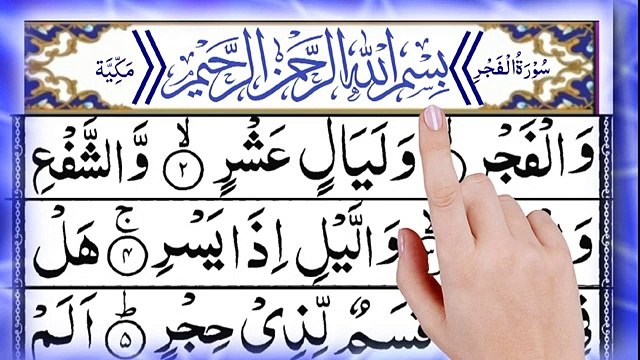 سُوْرَةُ الْفَجْرِ بِسْمِ اللّٰهِ الرَّحْمٰنِ الرَّحِيْمِ مَكِّيَّة
وَالْفَجْرِ وَلَيَالٍ عَشْرٍ ۙ‏﴿۲﴾ وَّالشَّفْعِ
وَالَّيْلِ اِذَا يَسْرِ ۚ‏﴿۴﴾ هَلْ
قَسَمٌ لِّذِىْ حِجْرٍ ؕ‏﴿۵﴾ اَلَمْ